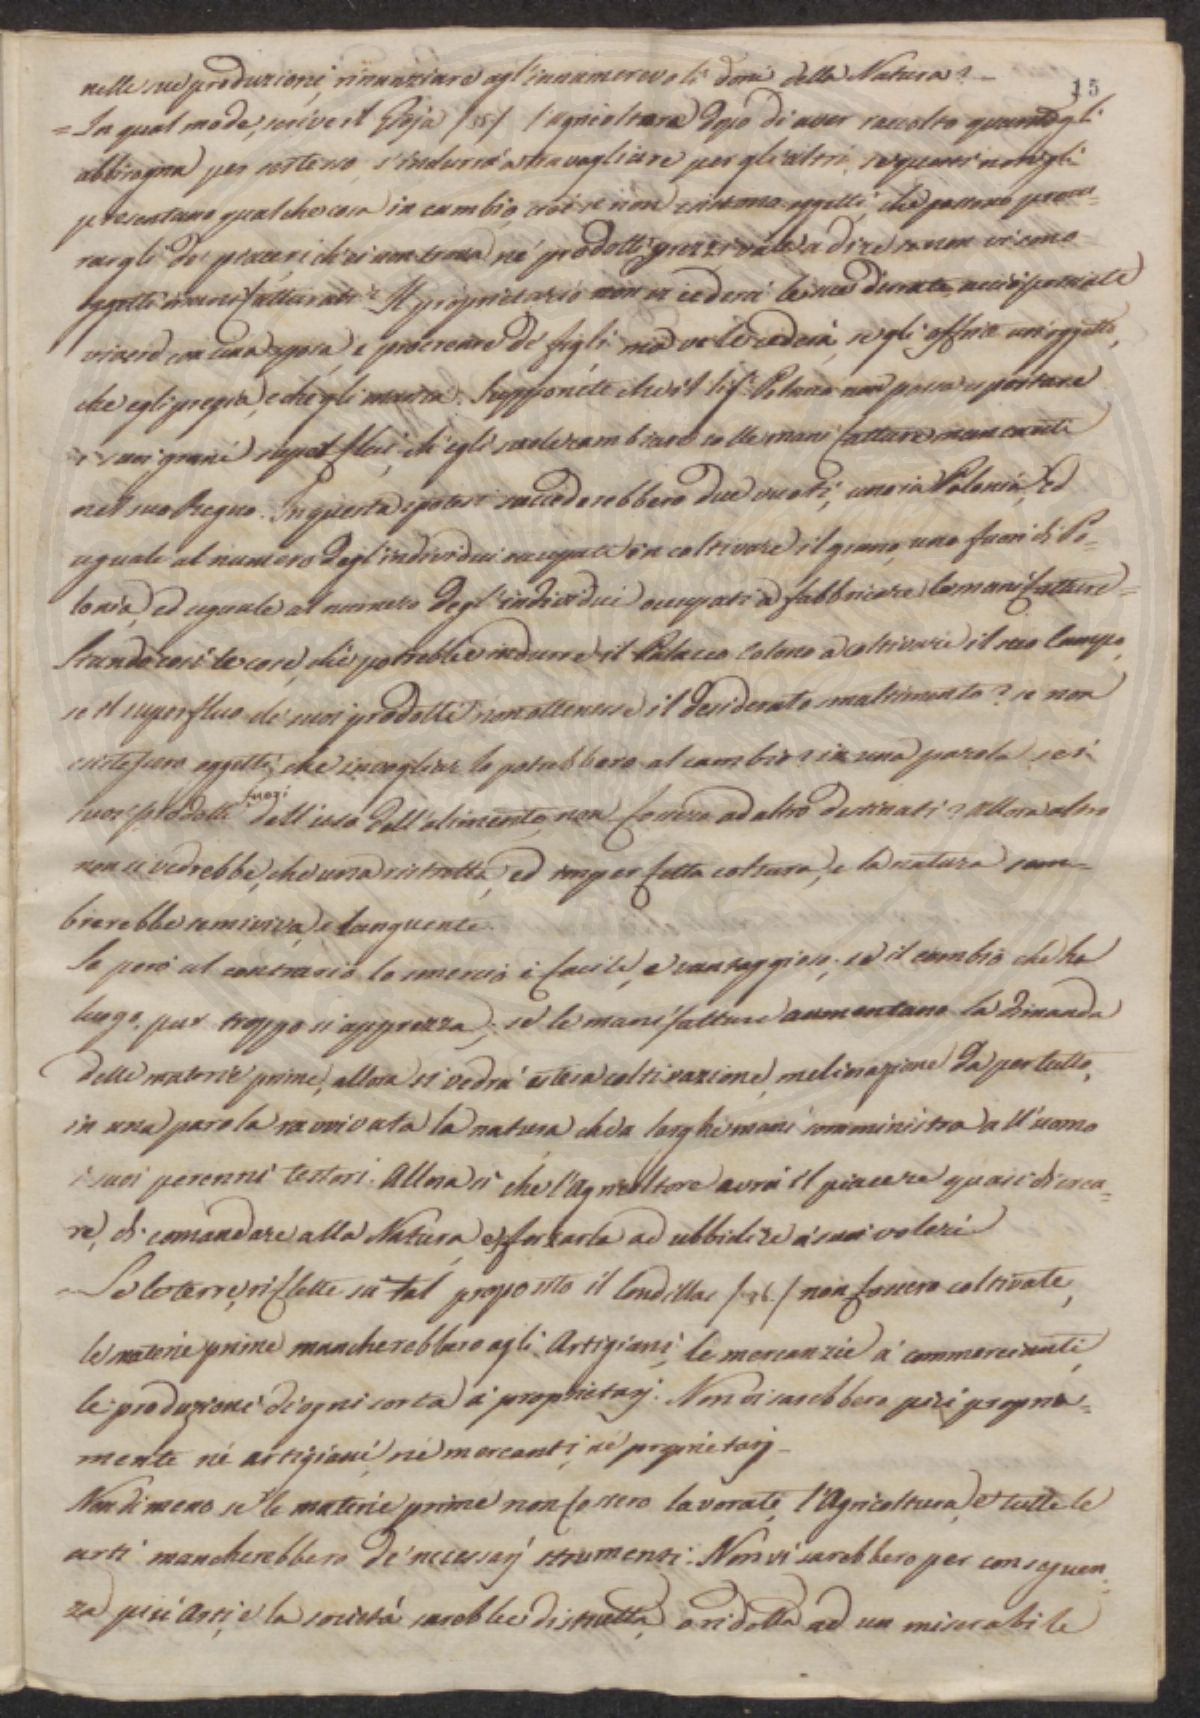 15
nelle sue produzioni, rinunziare agl'innumerevoli doni della Natura? -
= In qual modo, scrive il Gioja /35/ l'agricoltura dopo di aver raccolto quanto gli
abbisogna per se stesso, s'indurrà a travagliare per gli altri, se questi non gli
presentano qualche cosa in cambio, cioè se non esistono oggetti, che possono procu-
rargli de' piaceri ch'ei non trova né prodotti grezzi, vale a dire se non vi sono
oggetti manifatturati? Il proprietario non vi cederà le sue derrate, acciò possiate
vivere con una sposa, e procreare de' figli, ma ve le cederà, se gli offrite un oggetto,
che egli pregia, e che gli manca. Supponete che il Sig.r Polacco non possa esportare
i suoi grani superflui, ch'egli suole cambiare colle manifatture mancanti
nel suo Regno. In questa ipotesi succederebbero due vuoti, uno in Polonia, ed
uguale al numero degl'individui occupati in coltivare il grano, uno fuori di Po-
lonia, ed uguale al numero degl'individui occupati a fabbricare le manifatture =
Stando così le cose, che potrebbe indurre il Polacco Colono a coltivare il suo Campo,
se il superfluo de' suoi prodotti non ottenesse il desiderato smaltimento? se non
esistessero oggetti, che invogliar lo potrebbero al cambio? in una parola se i
suoi prodotti fuori dell'uso dell'alimento non fossero ad altro destinati? Allora altro
non si vedrebbe, che una ristretta, ed imperfetta coltura, e la natura sem-
brerebbe semiviva, e languente.
Se però al contrario lo smercio è facile, e vantaggioso; se il cambio che ha
luogo, pur troppo si apprezza; se le manifatture aumentano la dimanda
delle materie prime, allora si vedrà estesa coltivazione, meliorazione da per tutto,
in una parola ravvivata la natura che a larghe mani somministra all'uomo
i suoi perenni tesori. Allora sì che l'Agricoltore avrà il piacere quasi di crea-
re, di comandare alla Natura, e sforzarla ad ubbidire a' suoi voleri
- Se le terre, riflette su tal proposito il Condillac /36./ non fossero coltivate,
le materie prime mancherebbero agli Artigiani, le mercanzie a' commercianti,
le produzioni di ogni sorta a' proprietarj. Non vi sarebbero più propria-
mente né artigiani, né mercanti, né proprietarj -
Nondimeno se le materie prime non fossero lavorate, l'Agricoltura, e tutte le
arti mancherebbero de' necessarj strumenti. Non vi sarebbero per conseguen-
za più Arti, e la società sarebbe distrutta, o ridotta ad un miserabile